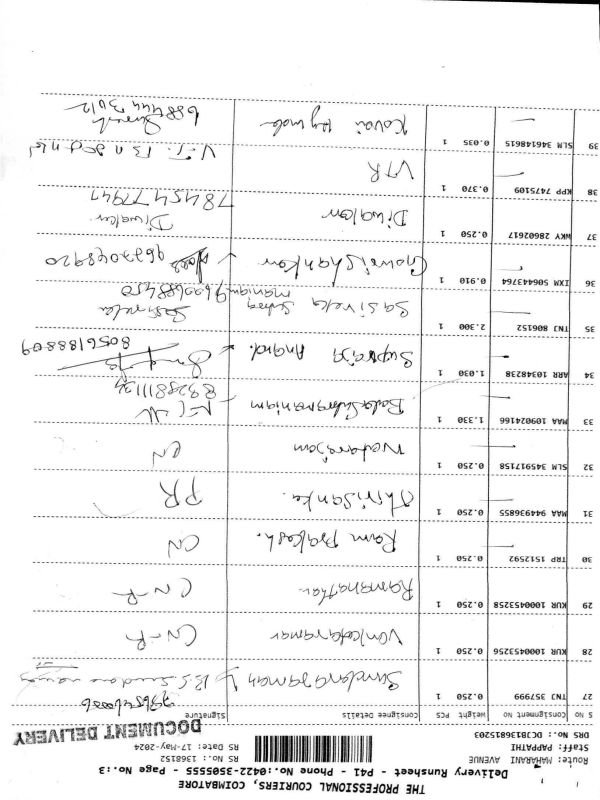 THE PROFESSIONAL COURIERS, COIMBATORE
Delivery Runsheet - P41 - Phone No.:0422-3505555 - Page No.:3
Route: MAHARANI AVENUE
Staff: PAPPATHI
DRS No.: DC0136815203
RS No.: 1368152
RS Date: 17-May-2024
DOCUMENT DELIVERY
S NO Consignment No Weight PCS Consignee Details Signature
27 TNJ 357999 0.250 1 Sundararaman
28 KUR 1000453256 0.250 1 Venkataraman CN-R
29 KUR 1000453258 0.250 1 Ramanathan CN-R
30 TRP 1512592 0.250 1 Ram Prakash. CN
31 MAA 944936855 0.250 1 PR
32 SLM 345917158 0.250 1 Natarajan CN
33 MAA 109024166 1.330 1 Balasubramaniam
34 ARR 10348238 1.030 1 Supraja Anand. 8056188809
35 TNJ 806152 2.300 1 Sasireka
36 IXM 506443764 0.910 1 Gowrishankar 9677048920
37 WKY 28602617 0.250 1 Diwakar Diwakar
7845477947
38 KPP 7475109 0.370 1 VTR
39 SLM 346148615 0.035 1 Kovai